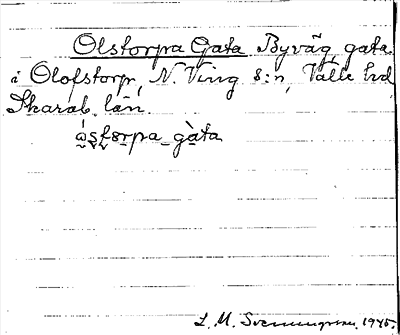 Olstorpa Gata Byväg, gata
i Olofstorp, N. Ving s:n, Valle hd
Skarab. län.
gàta
L. M. Svenungsson 1945.